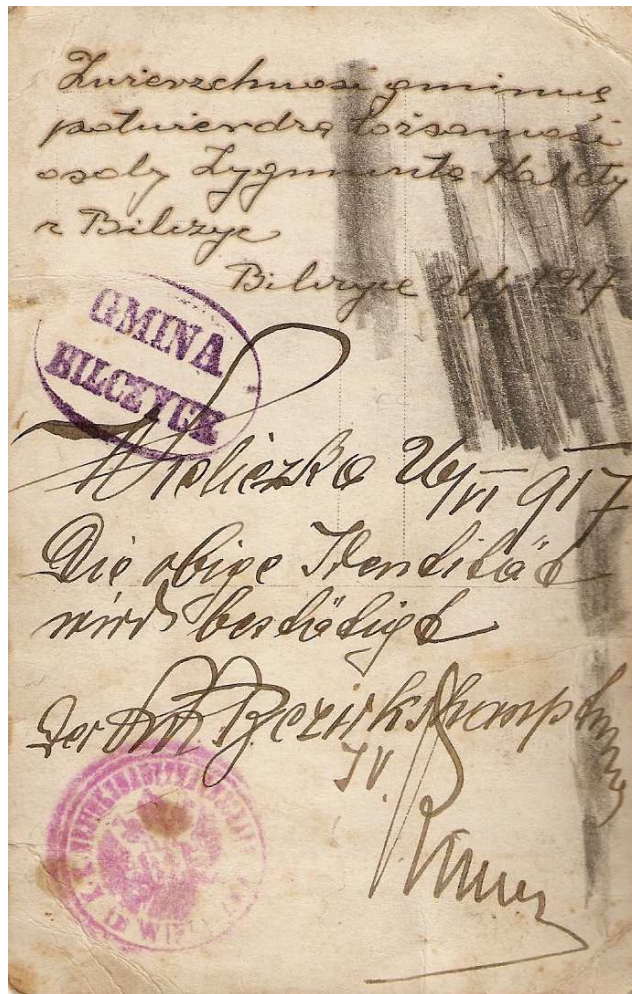 Zwierzchność gminna
potwierdza tożsamość
osoby Zygmunta Kalety
z Bilczyc
Bilczyce 26/6 1917
GMINA
BILCZYCE
Wieliczka 26/VI 917
Die obige Identität
wird bestätigt
Der k.k. Bezirkshauptmann
IV.